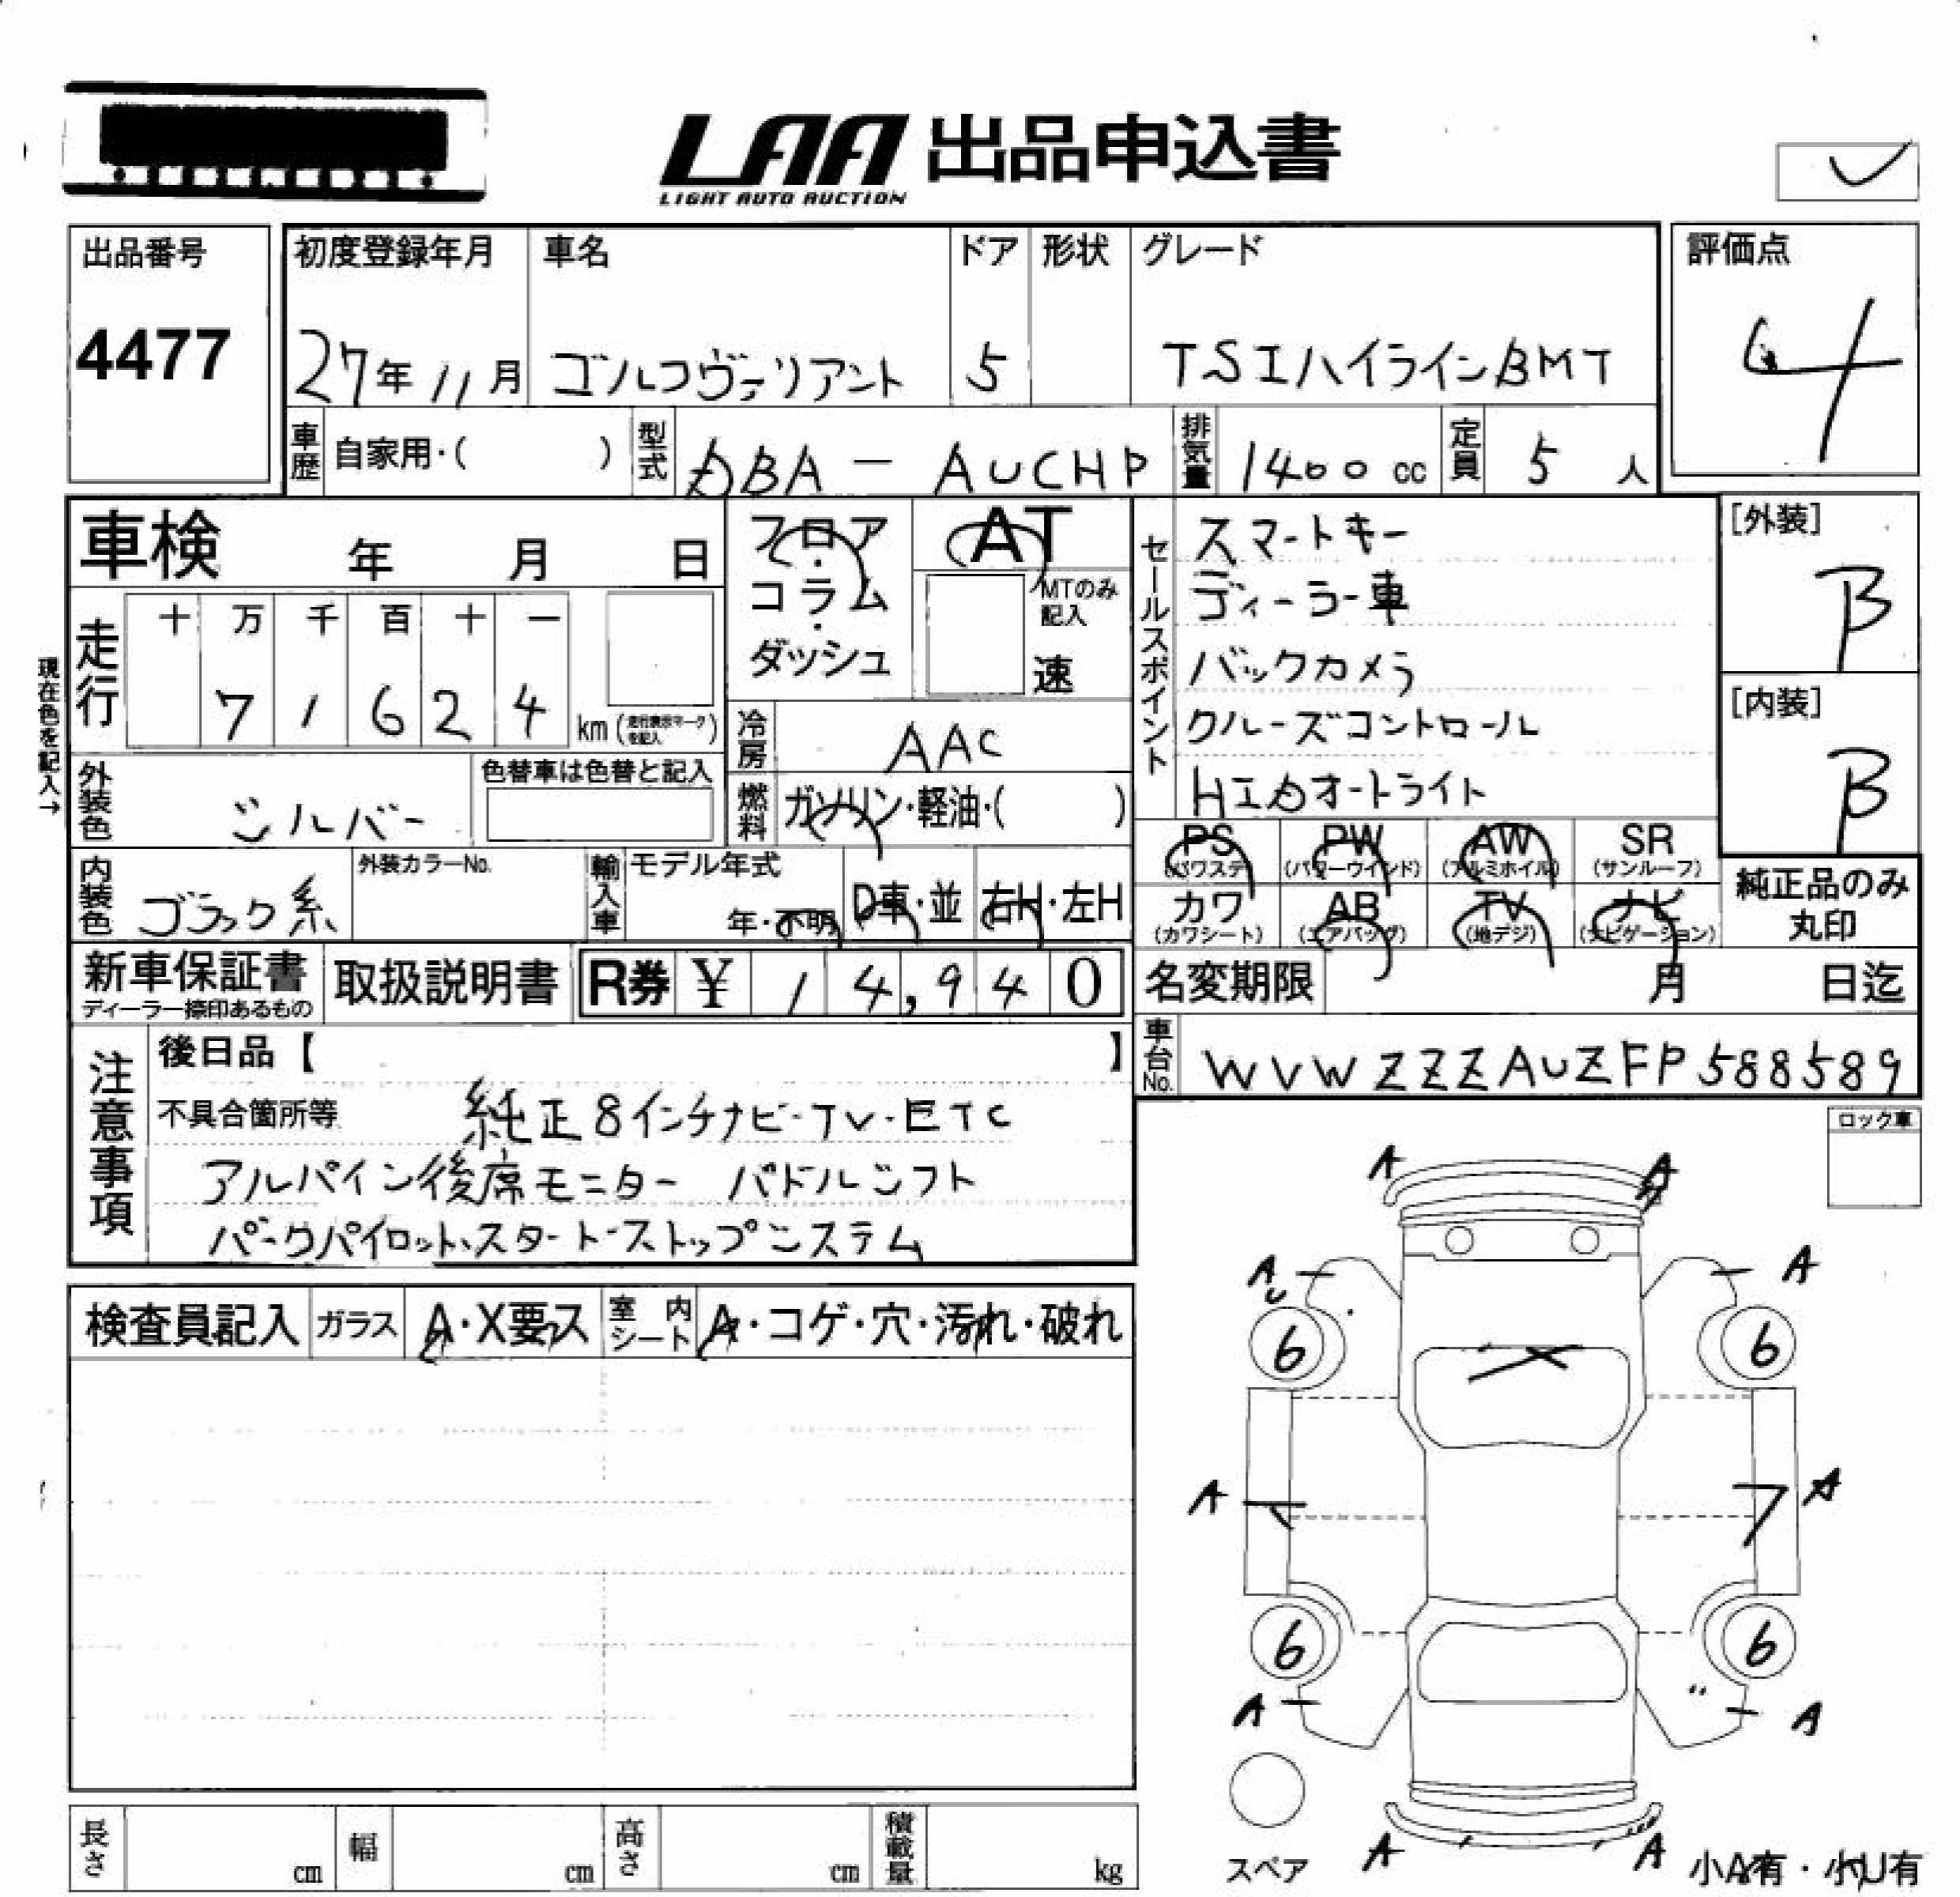 LAA 出品申込書
LIGHT AUTO AUCTION
出品番号 4477
初度登録年月 27年11月
車名 ゴルフヴァリアント
ドア 5
形状
グレード TSIハイラインBMT
評価点 4
車歴 自家用・( )
型式 DBA - AUCHP
排気量 1400 cc
定員 5 人
車検 年 月 日
フロア・コラム・ダッシュ
AT
MTのみ記入
速
セールスポイント
スマートキー
ディーラー車
バックカメラ
クルーズコントロール
HIDオートライト
[外装] B
[内装] B
現在色を記入→
走行 十 万 千 百 十 一
7 1 6 2 4 km (走行表示マークを記入)
冷房 AAC
燃料 ガソリン・軽油・( )
外装色 シルバー
色替車は色替と記入
内装色 ブラック系
外装カラーNo.
輸入車 モデル年式 年・不明 D車・並 右H・左H
PS (パワステ) PW (パワーウインド) AW (アルミホイル) SR (サンルーフ)
カワ (カワシート) AB (エアバッグ) TV (地デジ) ナビ (ナビゲーション)
純正品のみ丸印
新車保証書
ディーラー捺印あるもの
取扱説明書
R券 ¥ 1 4,9 4 0
名変期限 月 日迄
車台No. WVWZZZAUZFP588589
注意事項
後日品【 】
不具合箇所等 純正8インチナビ・TV・ETC
アルパイン後席モニター パドルシフト
パークパイロット、スタート・ストップシステム
ロック車
検査員記入 ガラス A・X要ス 室内シート A・コゲ・穴・汚れ・破れ
A A
A A
6 6
A A
6 6
A A
スペア A A 小A有・小U有
長さ cm 幅 cm 高さ cm 積載量 kg